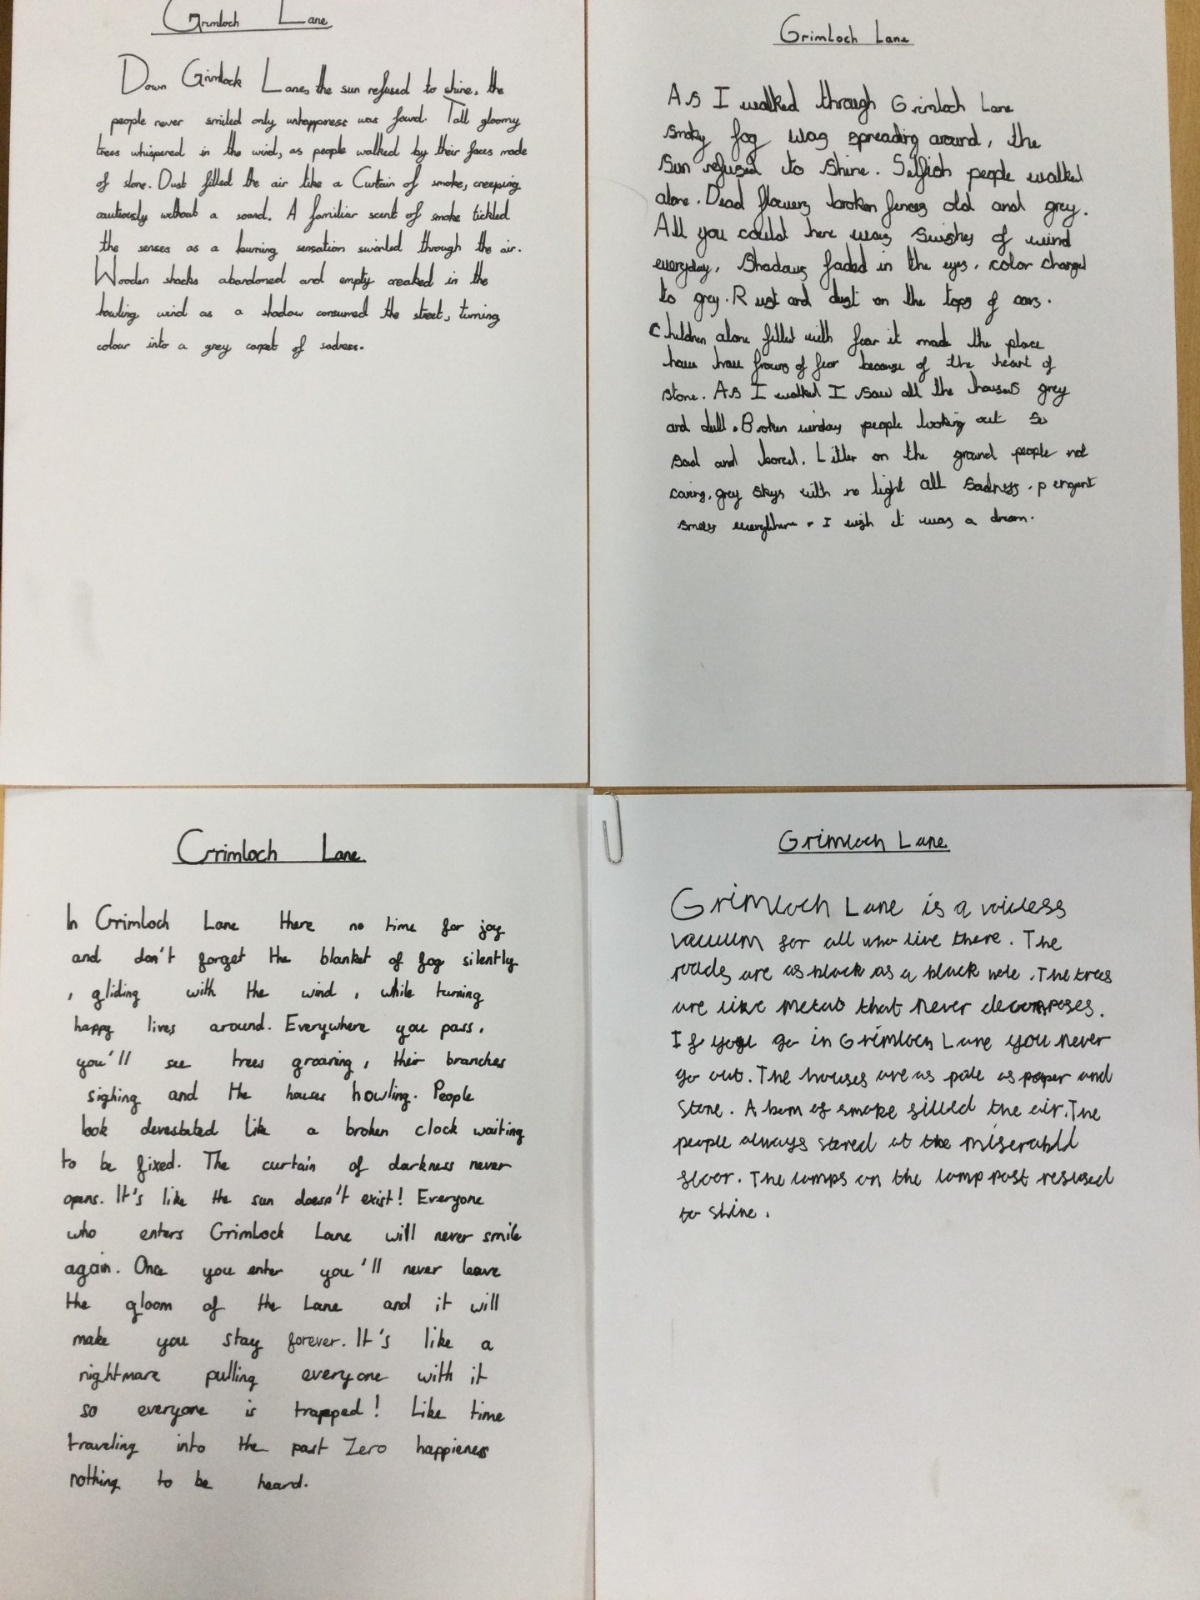 Grimloch Lane
Down Grimlock Lane, the sun refused to shine, the
people never smiled only unhappness was found. Tall gloomy
trees whispered in the wind, as people walked by their faces made
of stone. Dust filled the air like a Curtain of smoke, creeping
cautiously without a sound. A familiar scent of smoke tickled
the senses as a burning sensation swirled through the air.
Wooden shacks abandoned and empty creaked in the
howling wind as a shadow consumed the street, turning
colour into a grey carpet of sadness.
Grimloch Lane
As I walked through Grimloch Lane
smoky fog was spreading around, the
Sun refused to Shine. Selfish people walked
alone. Dead flowers broken fences old and grey.
All you could here was Swishes of wind
everyday, Shadows faded in the eyes, color changed
to grey. Rust and dust on the tops of cars.
Children alone filled with fear it made the place
have have frowns of fear because of the heart of
stone. As I walked I saw all the houses grey
and dull. Broken people looking out so
sad and bored. Litter on the ground people not
caring, grey skys with no light all sadness.
everywhere. I wish it was a dream.
Grimloch Lane
In Grimloch Lane there no time for joy
and don't forget the blanket of fog silently
, gliding with the wind, while turning
happy lives around. Everywhere you pass,
you'll see trees groaning, their branches
sighing and the houses howling. People
look devestated like a broken clock waiting
to be fixed. The curtain of darkness never
opens. It's like the sun doesn't exist! Everyone
who enters Grimlock Lane will never smile
again. Once you enter you'll never leave
the gloom of the Lane and it will
make you stay forever. It's like a
nightmare pulling everyone with it
so everyone is trapped! Like time
traveling into the past Zero happieness
nothing to be heard.
Grimloch Lane
Grimloch Lane is a voiceless
vacuum for all who live there. The
roads are as black as a black hole. The trees
are like metal that never decomposes.
If you go in Grimloch Lane you never
go out. The houses are as pale as paper and
Stone. A bum of smoke filled the air. The
people always stared at the miserabll
floor. The lamps on the lamp post refused
to shine.